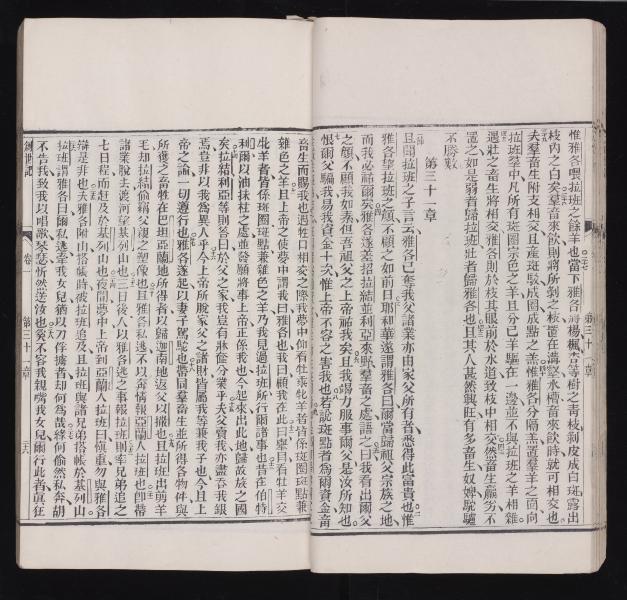 惟雅各喂拉班之餘羊也當下雅各將楊楓杏等樹之青枝剝皮成白斑露出
枝內之白矣羣畜來飲則將所剝之板置在溝壑水槽畜來飲時就可相交也
夫羣畜生附支相交且產斑駁成圈成點之羔惟雅各分隔羔置羣羊之面向
拉班羣中凡所有斑圈棕色之羊且分已羊驅在一邊並不與拉班之羊相雜
遇壯之畜生將相交雅各則於枝其眼前於水道致枝中相交然畜生羸劣不
置之如是弱者歸拉班壯者歸雅各也且其人甚然興旺有多畜生奴婢駝驢
不勝數
第三十一章
且聞拉班之子言云雅各已奪我父諸業亦由家父所有者悉得此富貴也惟
雅各望拉班之顏不顧之如前日耶和華遂謂雅各曰爾當歸祖父宗族之地
而我必祐爾矣雅各遂差招拉結並利亞來野羣畜之處語之曰我看出爾父
之顏不顧我如素但吾祖父之上帝祐我矣且我竭力服事爾父是汝所知也
惟爾父騙我易我資金十次惟上帝不容之害我也若說斑點者為爾資金畜
畜生而賜我也且牲口相交之際我夢中仰看牡羊皆係斑圈斑點兼
雜色之羊且上帝之使夢中謂我曰雅各也我曰顧我在此曰舉目看牡羊交
牝羊者皆係斑圈斑點兼雜色之羊乃我見過拉班所行爾諸事也昔在伯特
利爾以油抹柱之處並發願將事上帝正係我也今起來出此地歸故族之國
矣拉結利亞等則答曰於父之家我豈有牀餘分業乎夫父賣我亦盡吞我銀
焉豈非以我為異人乎今上帝所脫家父之諸財皆屬我等兼我子也今且上
帝之諭一切遵行也雅各遂起以妻子駕駝也帶同羣畜生並所得各物件與
所獲之畜牲在巴坦亞蘭地所得者以歸迦南地返父以撒也且拉班出剪羊
毛却拉結偷竊父親之塑像也且雅各私逃不以奔情報亞蘭人拉班也即帶
諸業脫去渡河望基列山也三日後人以雅各逃之事報拉班則率兄弟追之
七日程而趕及於基列山也夜間夢中上帝到亞蘭人拉班曰慎重勿與雅各
辯是非也夫雅各附山搭帳時被拉班追及且拉班與諸兄弟搭帳於基列山
拉班謂雅各曰爾私逃牽我女兒猶以刀俘擄者却何為哉緣何偷然私奔胡
不告我致我以唱歌琴瑟忻然送汝也矣不容我親嘴我女兒爾行此者真狂
創世記 卷一 第三十一章